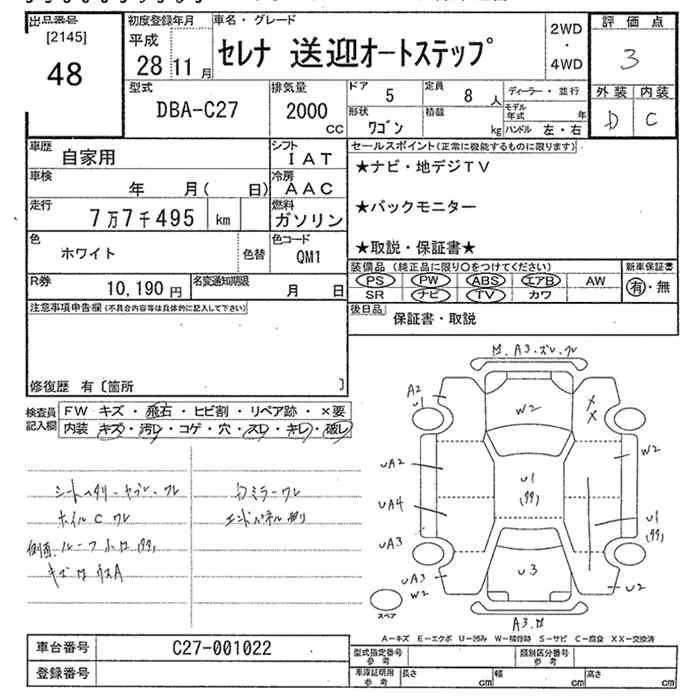 出品番号
[2145]
48
初度登録年月
平成
28 11月
車名・グレード
セレナ 送迎オートステップ
2WD
・
4WD
評価点
3
外装 内装
D C
型式
DBA-C27
排気量
2000
CC
ドア
5
定員
8人
形状
ワゴン
積載
kg
ディーラー・並行
モデル年式 年
ハンドル 左・右
車歴
自家用
シフト
IAT
車検
年 月( 日)
冷房
AAC
走行
7万7千495 km
燃料
ガソリン
色
ホワイト
色替
色コード
QM1
R券
10,190円
名変通知期限
月 日
セールスポイント(正常に機能するものに限ります)
★ナビ・地デジTV
★バックモニター
★取説・保証書★
装備品(純正品に限り○をつけてください)
PS PW ABS エアB AW
SR ナビ TV カワ
新車保証書
有・無
後日品
保証書・取説
注意事項申告欄(不具合内容等は具体的に記入して下さい)
修復歴 有〔箇所 〕
検査員記入欄
FW キズ・飛石・ヒビ割・リペア跡・×要
内装 キズ・汚レ・コゲ・穴・スレ・キレ・破レ
シートヘタリ・ヤブレ・ワレ
ホイルC ワレ
カミラーワレ
A2
U1
W2
X
X
UA2
W2
UA4
U1
UA3
U1
UA3
W2
U3
U2
スペア
A-キズ E-エクボ U-凹み W-補修跡 S-サビ C-腐食 XX-交換済
車台番号
C27-001022
登録番号
型式指定番号
参考
類別区分番号
参考
車庫証明用
参考
長さ cm
幅 cm
高さ cm